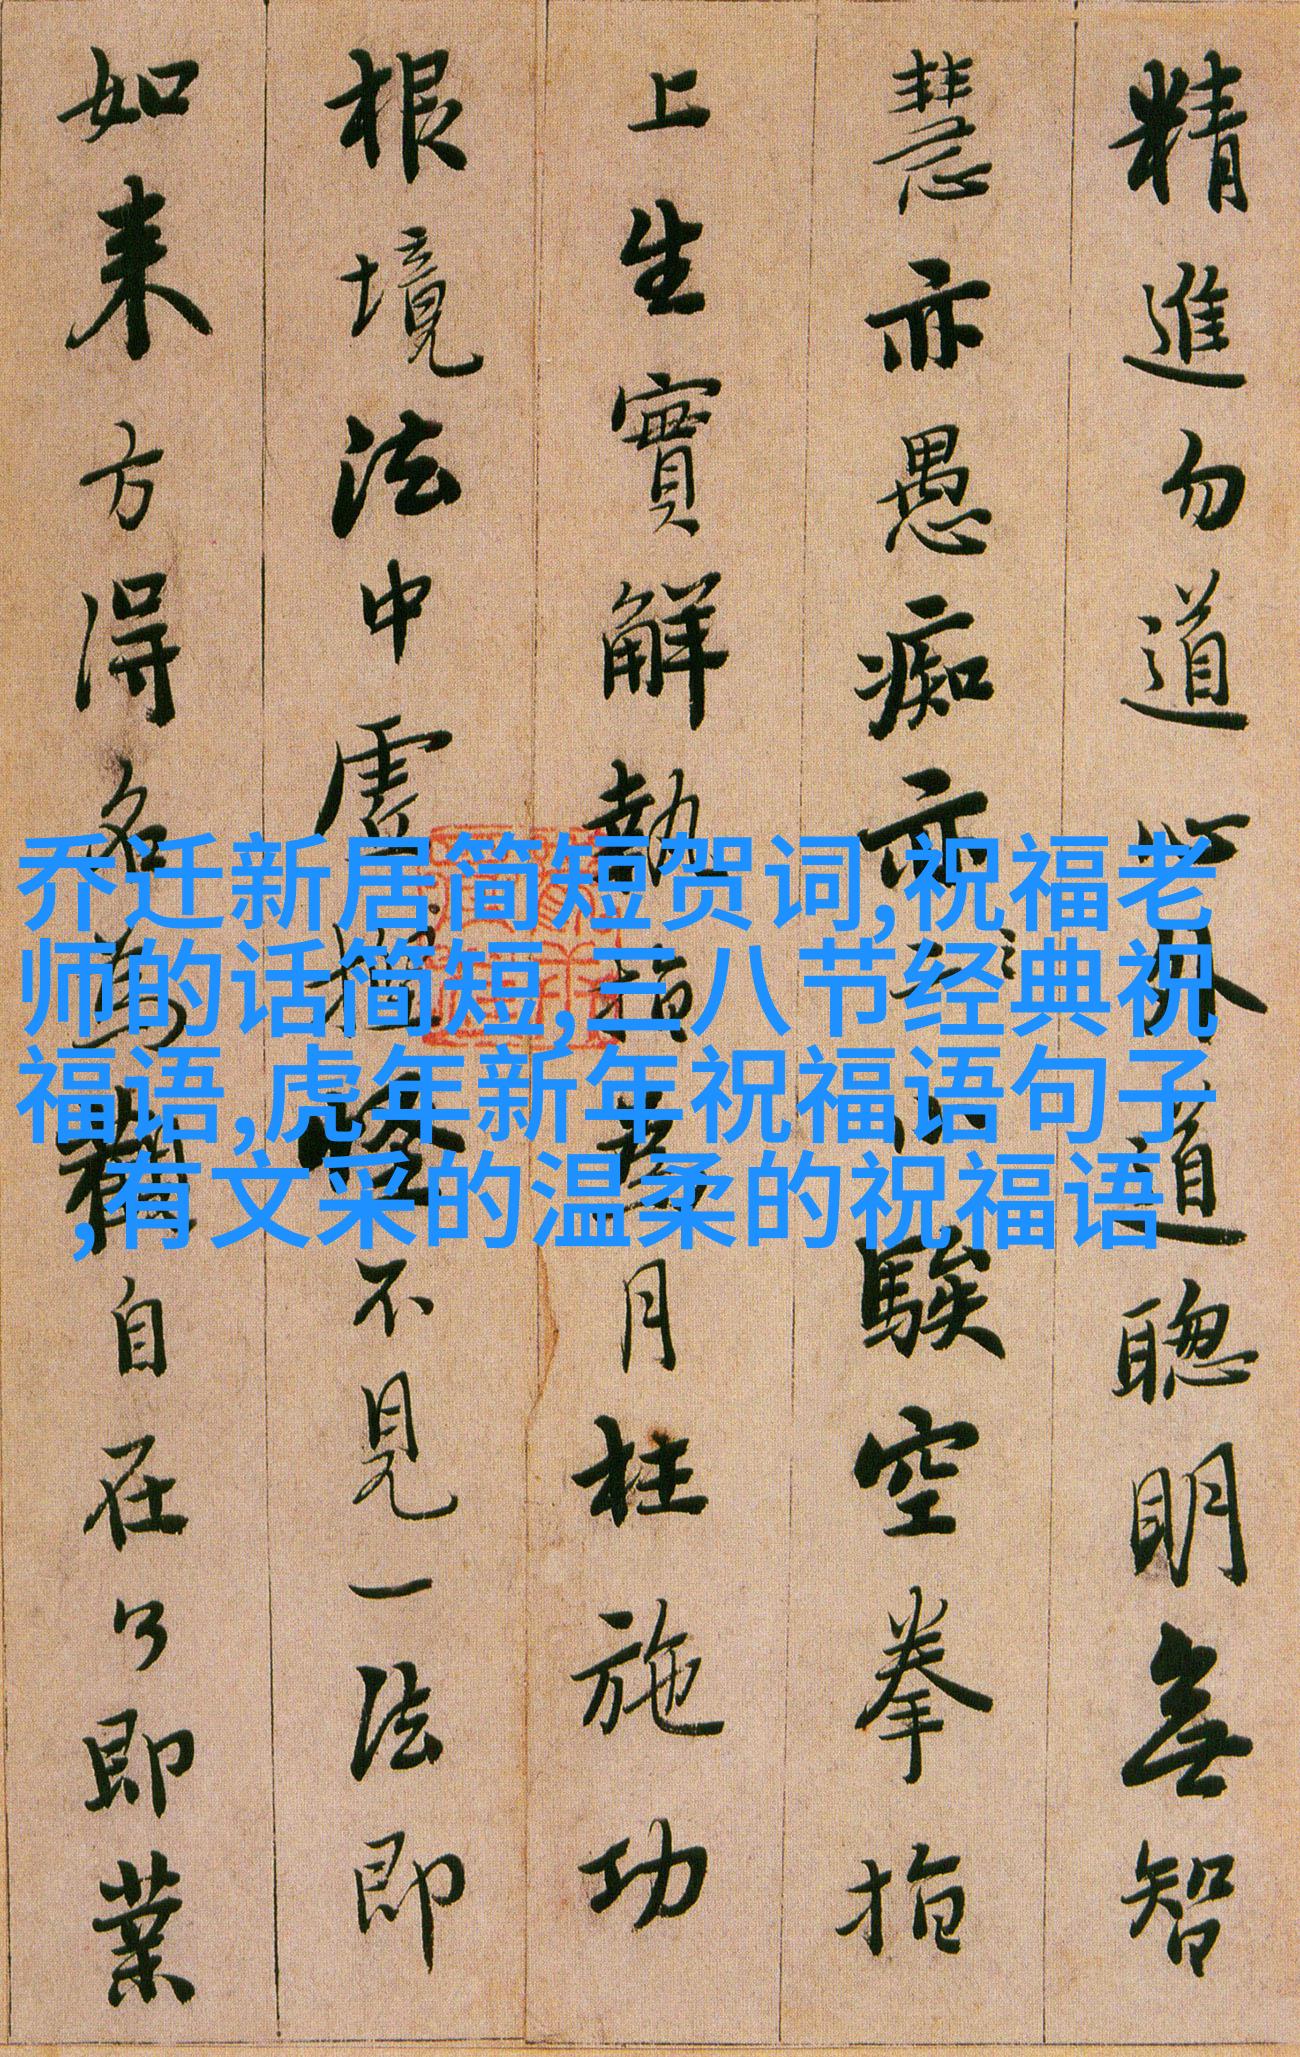 精進勿道心外道聰明無智
慧亦愚痴亦小騃空拳指
上生實解執指為月枉施功
根境法中虛捏怪不見一法即
如来方得名為觀自在了即業
乔迁新居简短贺词,祝福老
师的话简短,三八节经典祝
福语,虎年新年祝福语句子
,有文采的温柔的祝福语